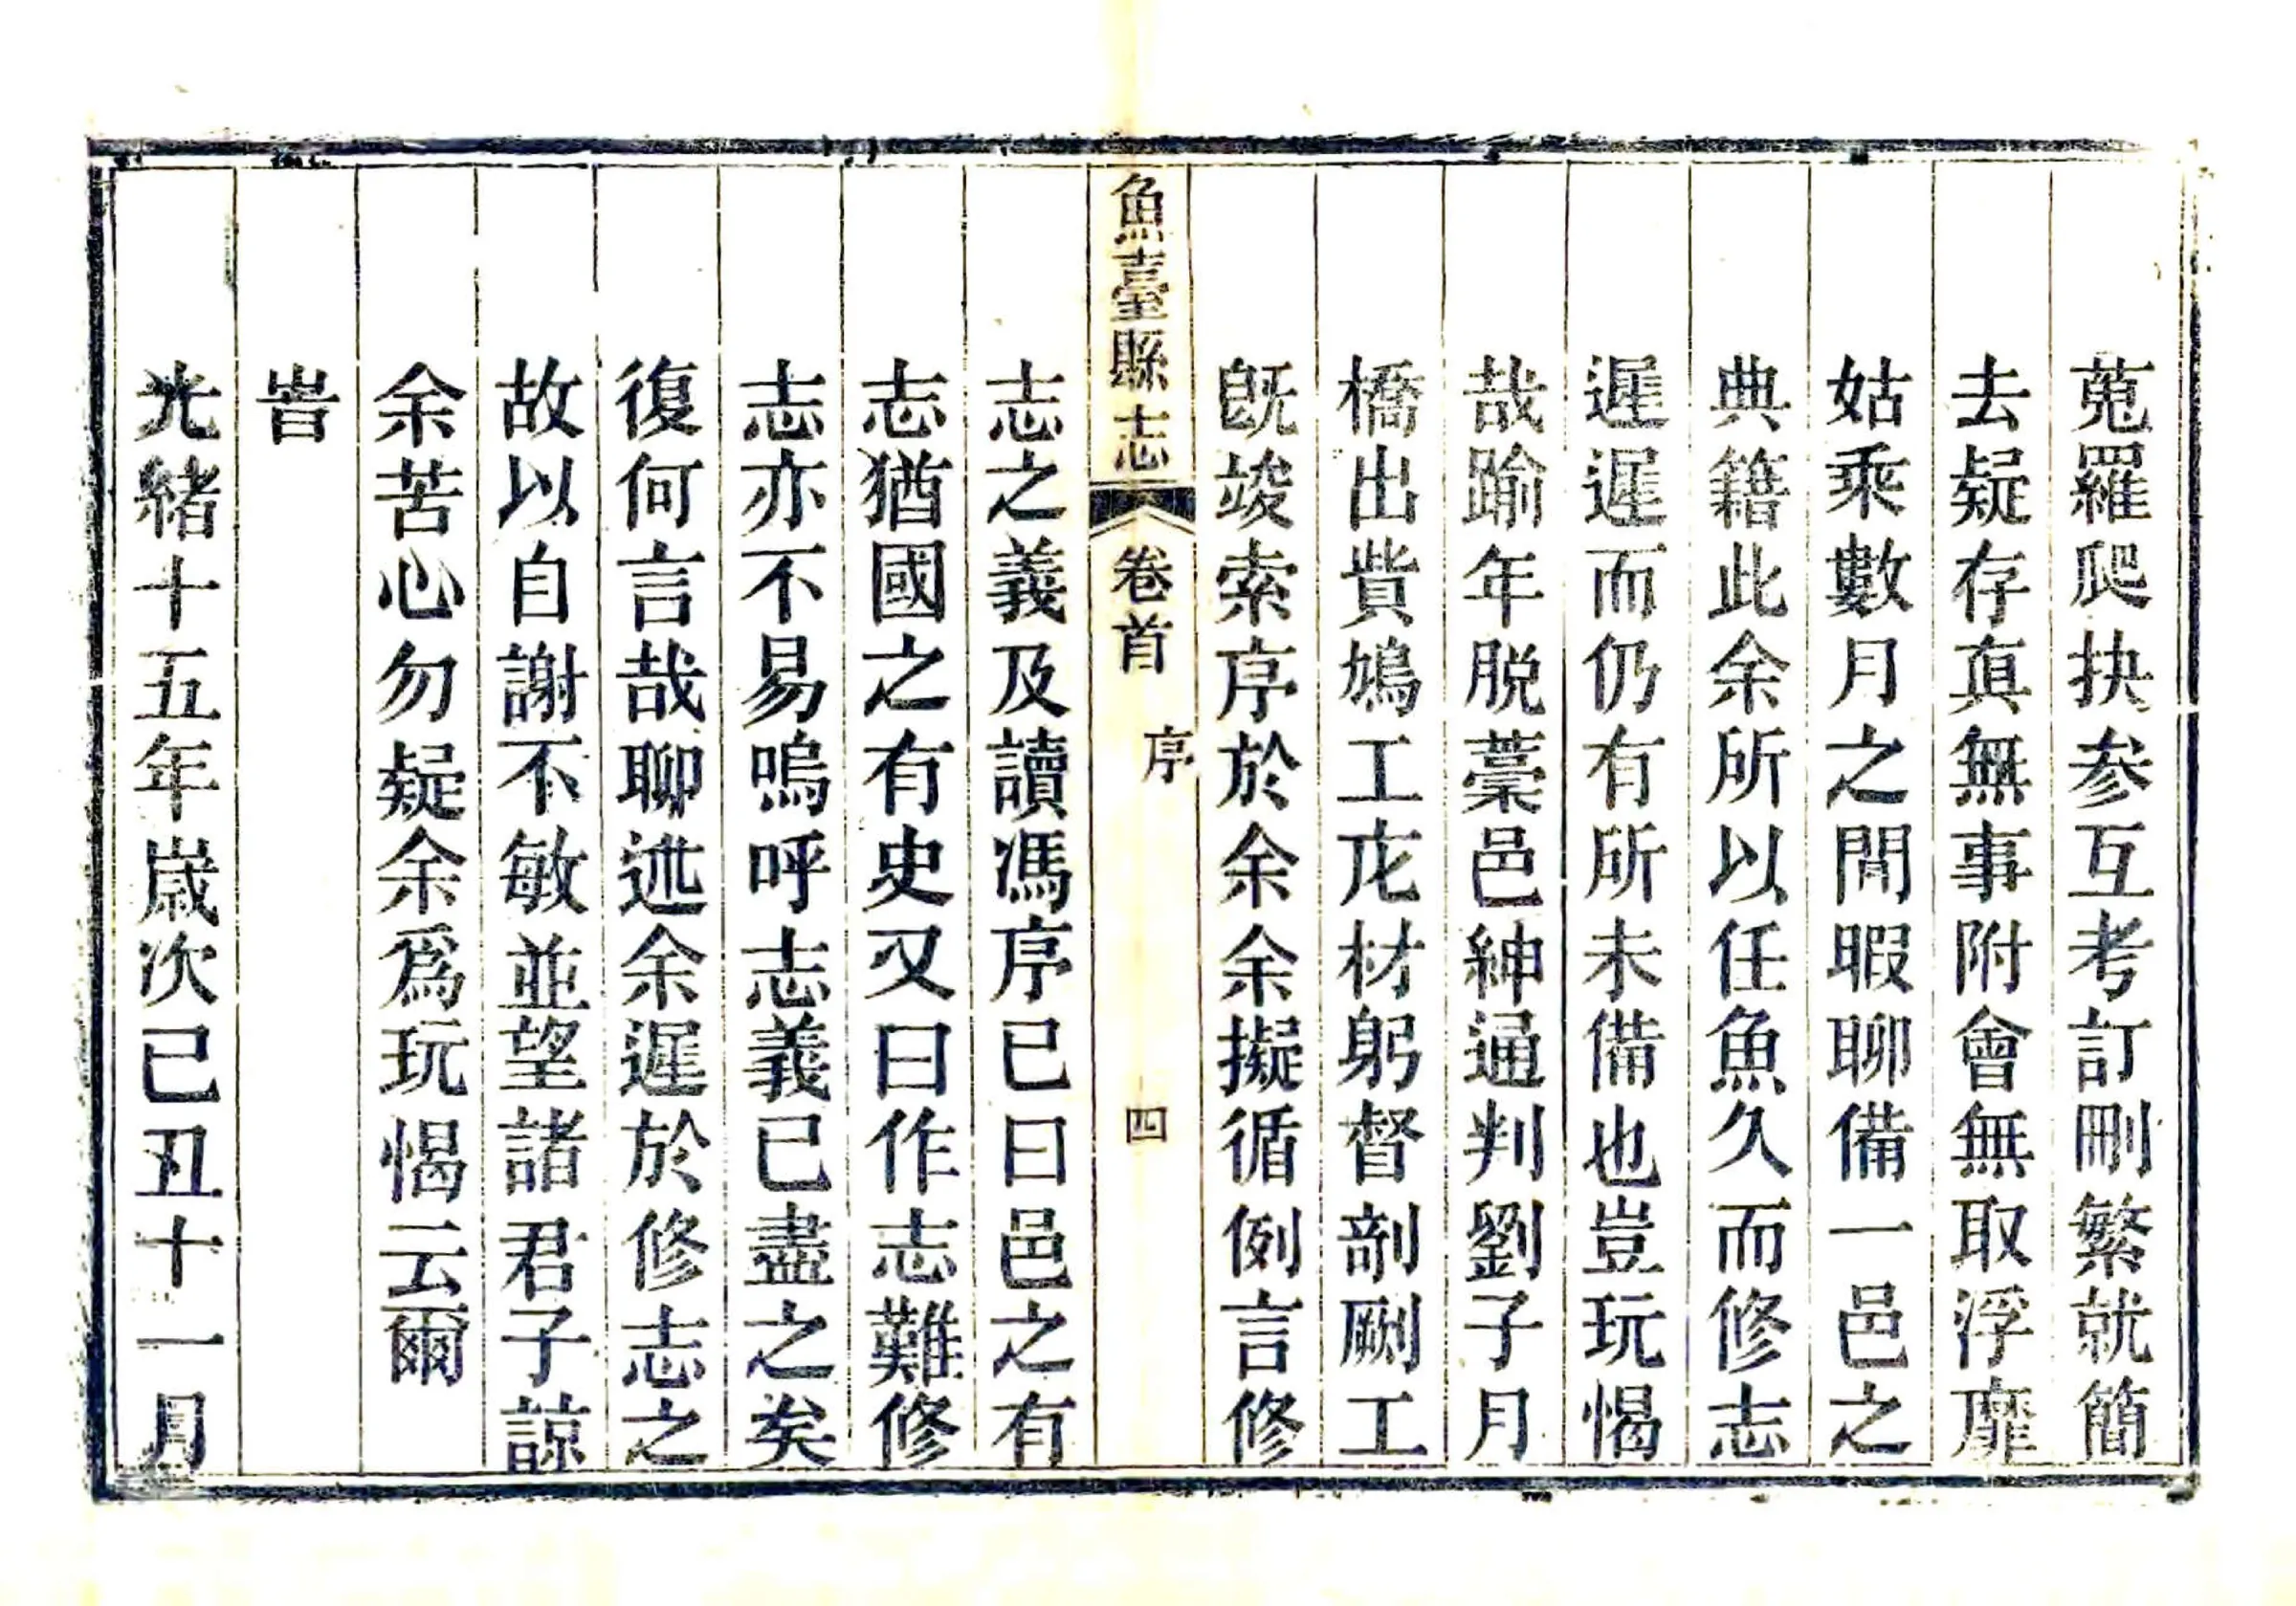 蒐羅爬抉参互考訂刪繁就簡
去疑存真無事附會無取浮靡
姑乘數月之閒暇聊備一邑之
典籍此余所以任魚久而修志
遲遲而仍有所未備也豈玩愒
哉踰年脱藁邑紳通判劉子月
橋出貲鳩工庀材躬督剞劂工
旣竣索序於余余擬循例言修
魚臺縣志
卷首
序
四
志之義及讀馮序已曰邑之有
志猶國之有史又曰作志難修
志亦不易嗚呼志義已盡之矣
復何言哉聊述余遲於修志之
故以自謝不敏並望諸君子諒
余苦心勿疑余爲玩愒云爾
旹
光緒十五年歲次己丑十一月